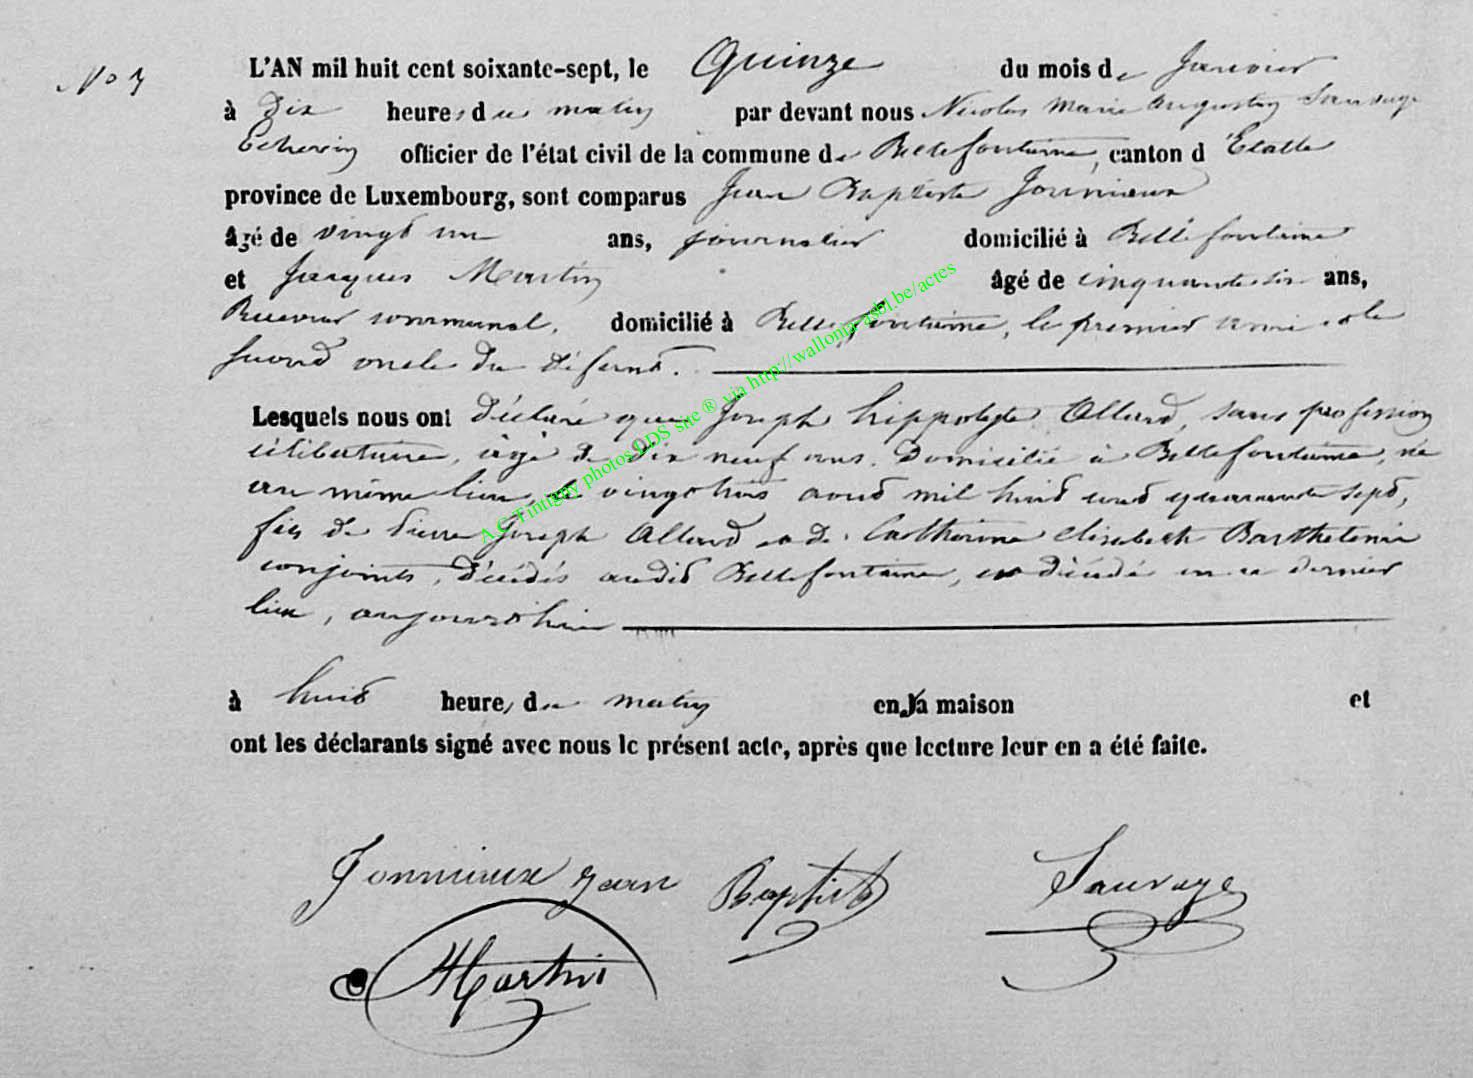 L'AN mil huit cent soixante-sept, le Quinze du mois de Janvier
à Dix heures du matin par devant nous Nicolas Marie Augustin Sauvage
Echevin officier de l'état civil de la commune de Bellefontaine, canton d'Etalle
province de Luxembourg, sont comparus Jean Baptiste Jonniaux
âgé de vingt un ans, journalier domicilié à Bellefontaine
et Jacques Martin âgé de cinquante six ans,
Receveur communal, domicilié à Bellefontaine, le premier ami et le
second oncle du défunt.
Lesquels nous ont déclaré que Joseph hippolyte Allard, sans profession
célibataire, âgé de dix neuf ans, domicilié à Bellefontaine, né
au même lieu, le vingt trois août mil huit cent quarante sept,
fils de Pierre Joseph Allard et de Catherine Elisabeth Barthelemi
conjoints, décédés audit Bellefontaine, est décédé en ce dernier
lieu, aujourd'hui
à huit heures du matin en la maison et
ont les déclarants signé avec nous le présent acte, après que lecture leur en a été faite.
Jonniaux Jean Baptist Sauvage
Martin
A.G. Tintigny photos LDS site ® via http://wallonia-asbl.be/actes